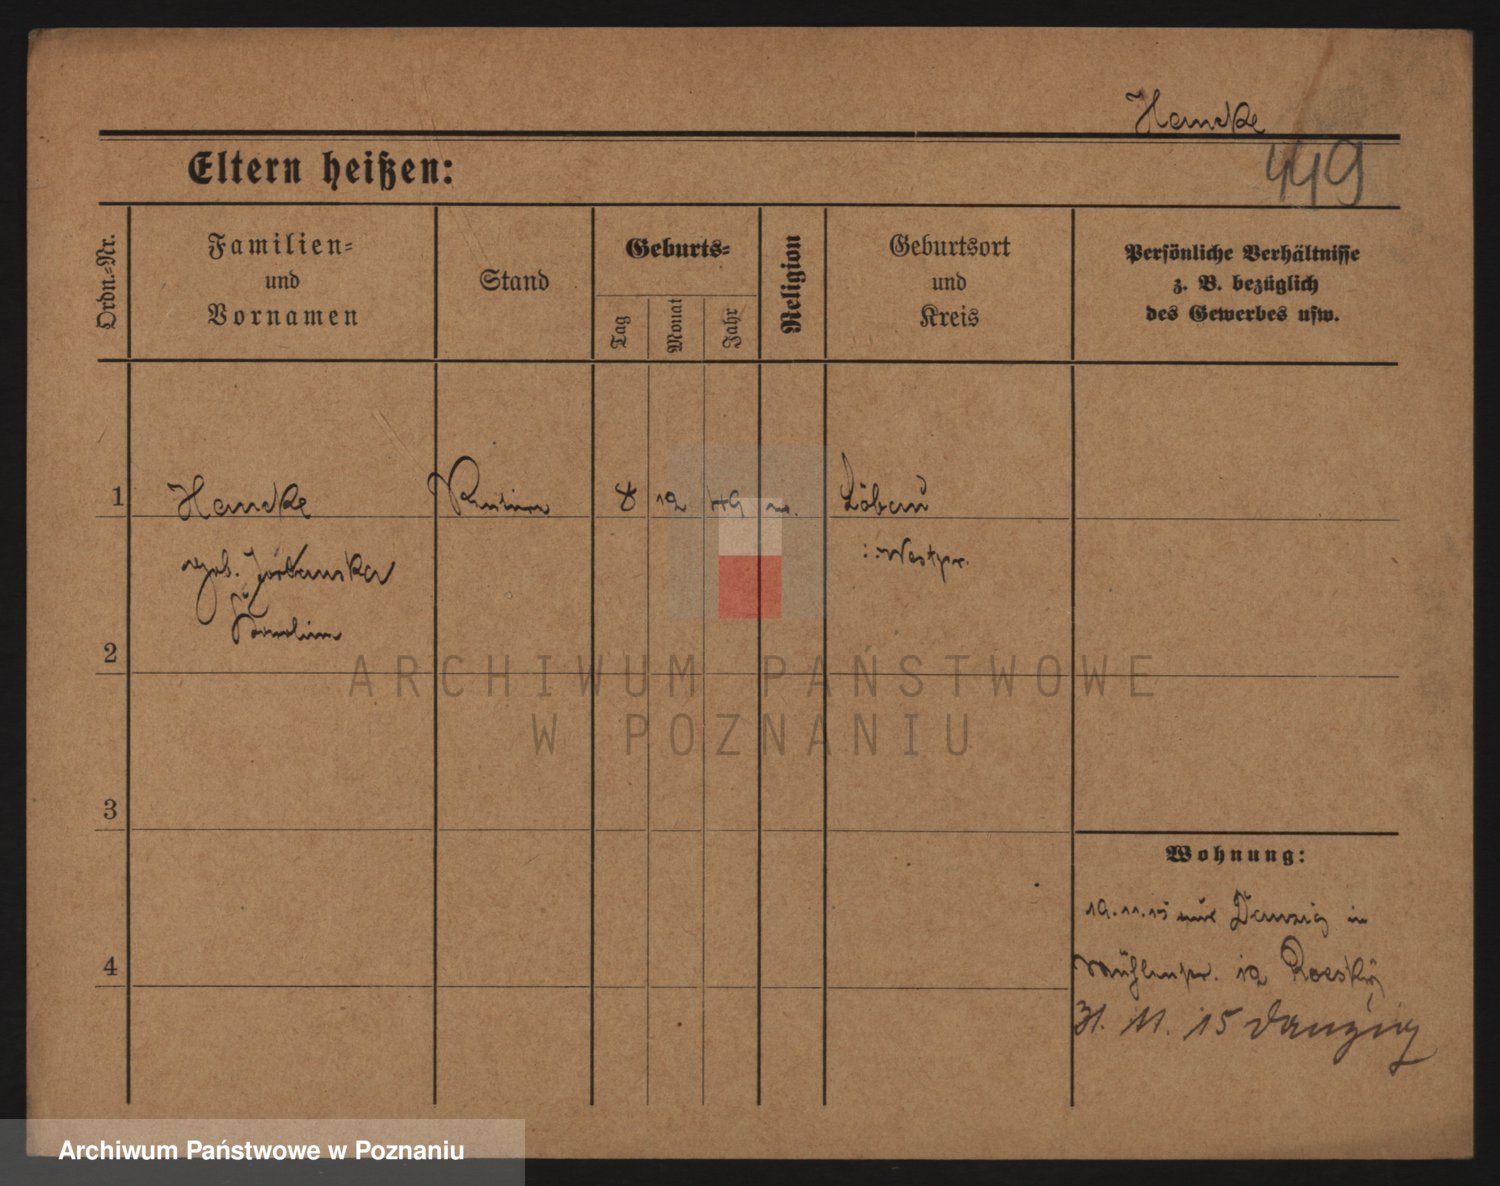 Hancke
449
Eltern heißen:
Ordn.=Nr.
Familien=
und
Vornamen
Stand
Geburts=
Tag
Monat
Jahr
Religion
Geburtsort
und
Kreis
Persönliche Verhältnisse
z. B. bezüglich
des Gewerbes usw.
1 Hancke 8 12 49 Löbau
geb.
Westpr.
2
ARCHIWUM PAŃSTWOWE
W POZNANIU
3
Wohnung:
19.11.15 aus Danzig in
4
12
11. 15 Danzig
Archiwum Państwowe w Poznaniu